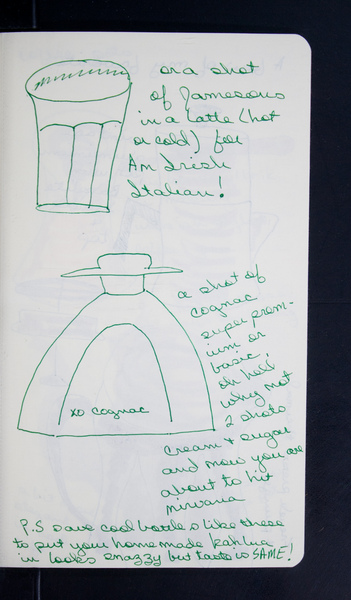 or a shot
of Jamesons
in a latte (hot
or cold) for
An Irish
Italian!
a shot of
cognac
super prem-
ium or
basic.
oh hell,
why not
2 shots
XO cognac
cream + sugar
and now you are
about to hit
nirvana
P.S save cool bottles like these
to put your homemade kahlua
in looks snazzy but taste is SAME!